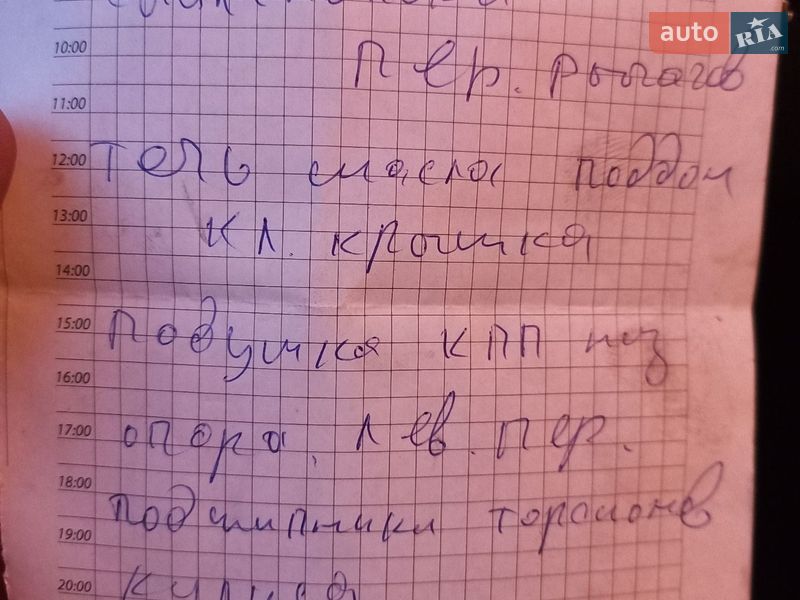 auto RIA .com
10:00 пер. рычагов
11:00
12:00 тель масла поддон
13:00 кл. крышка
14:00
15:00 подушка КПП низ
16:00
17:00 опора лев. пер.
18:00
подшипники торсионов
19:00
20:00